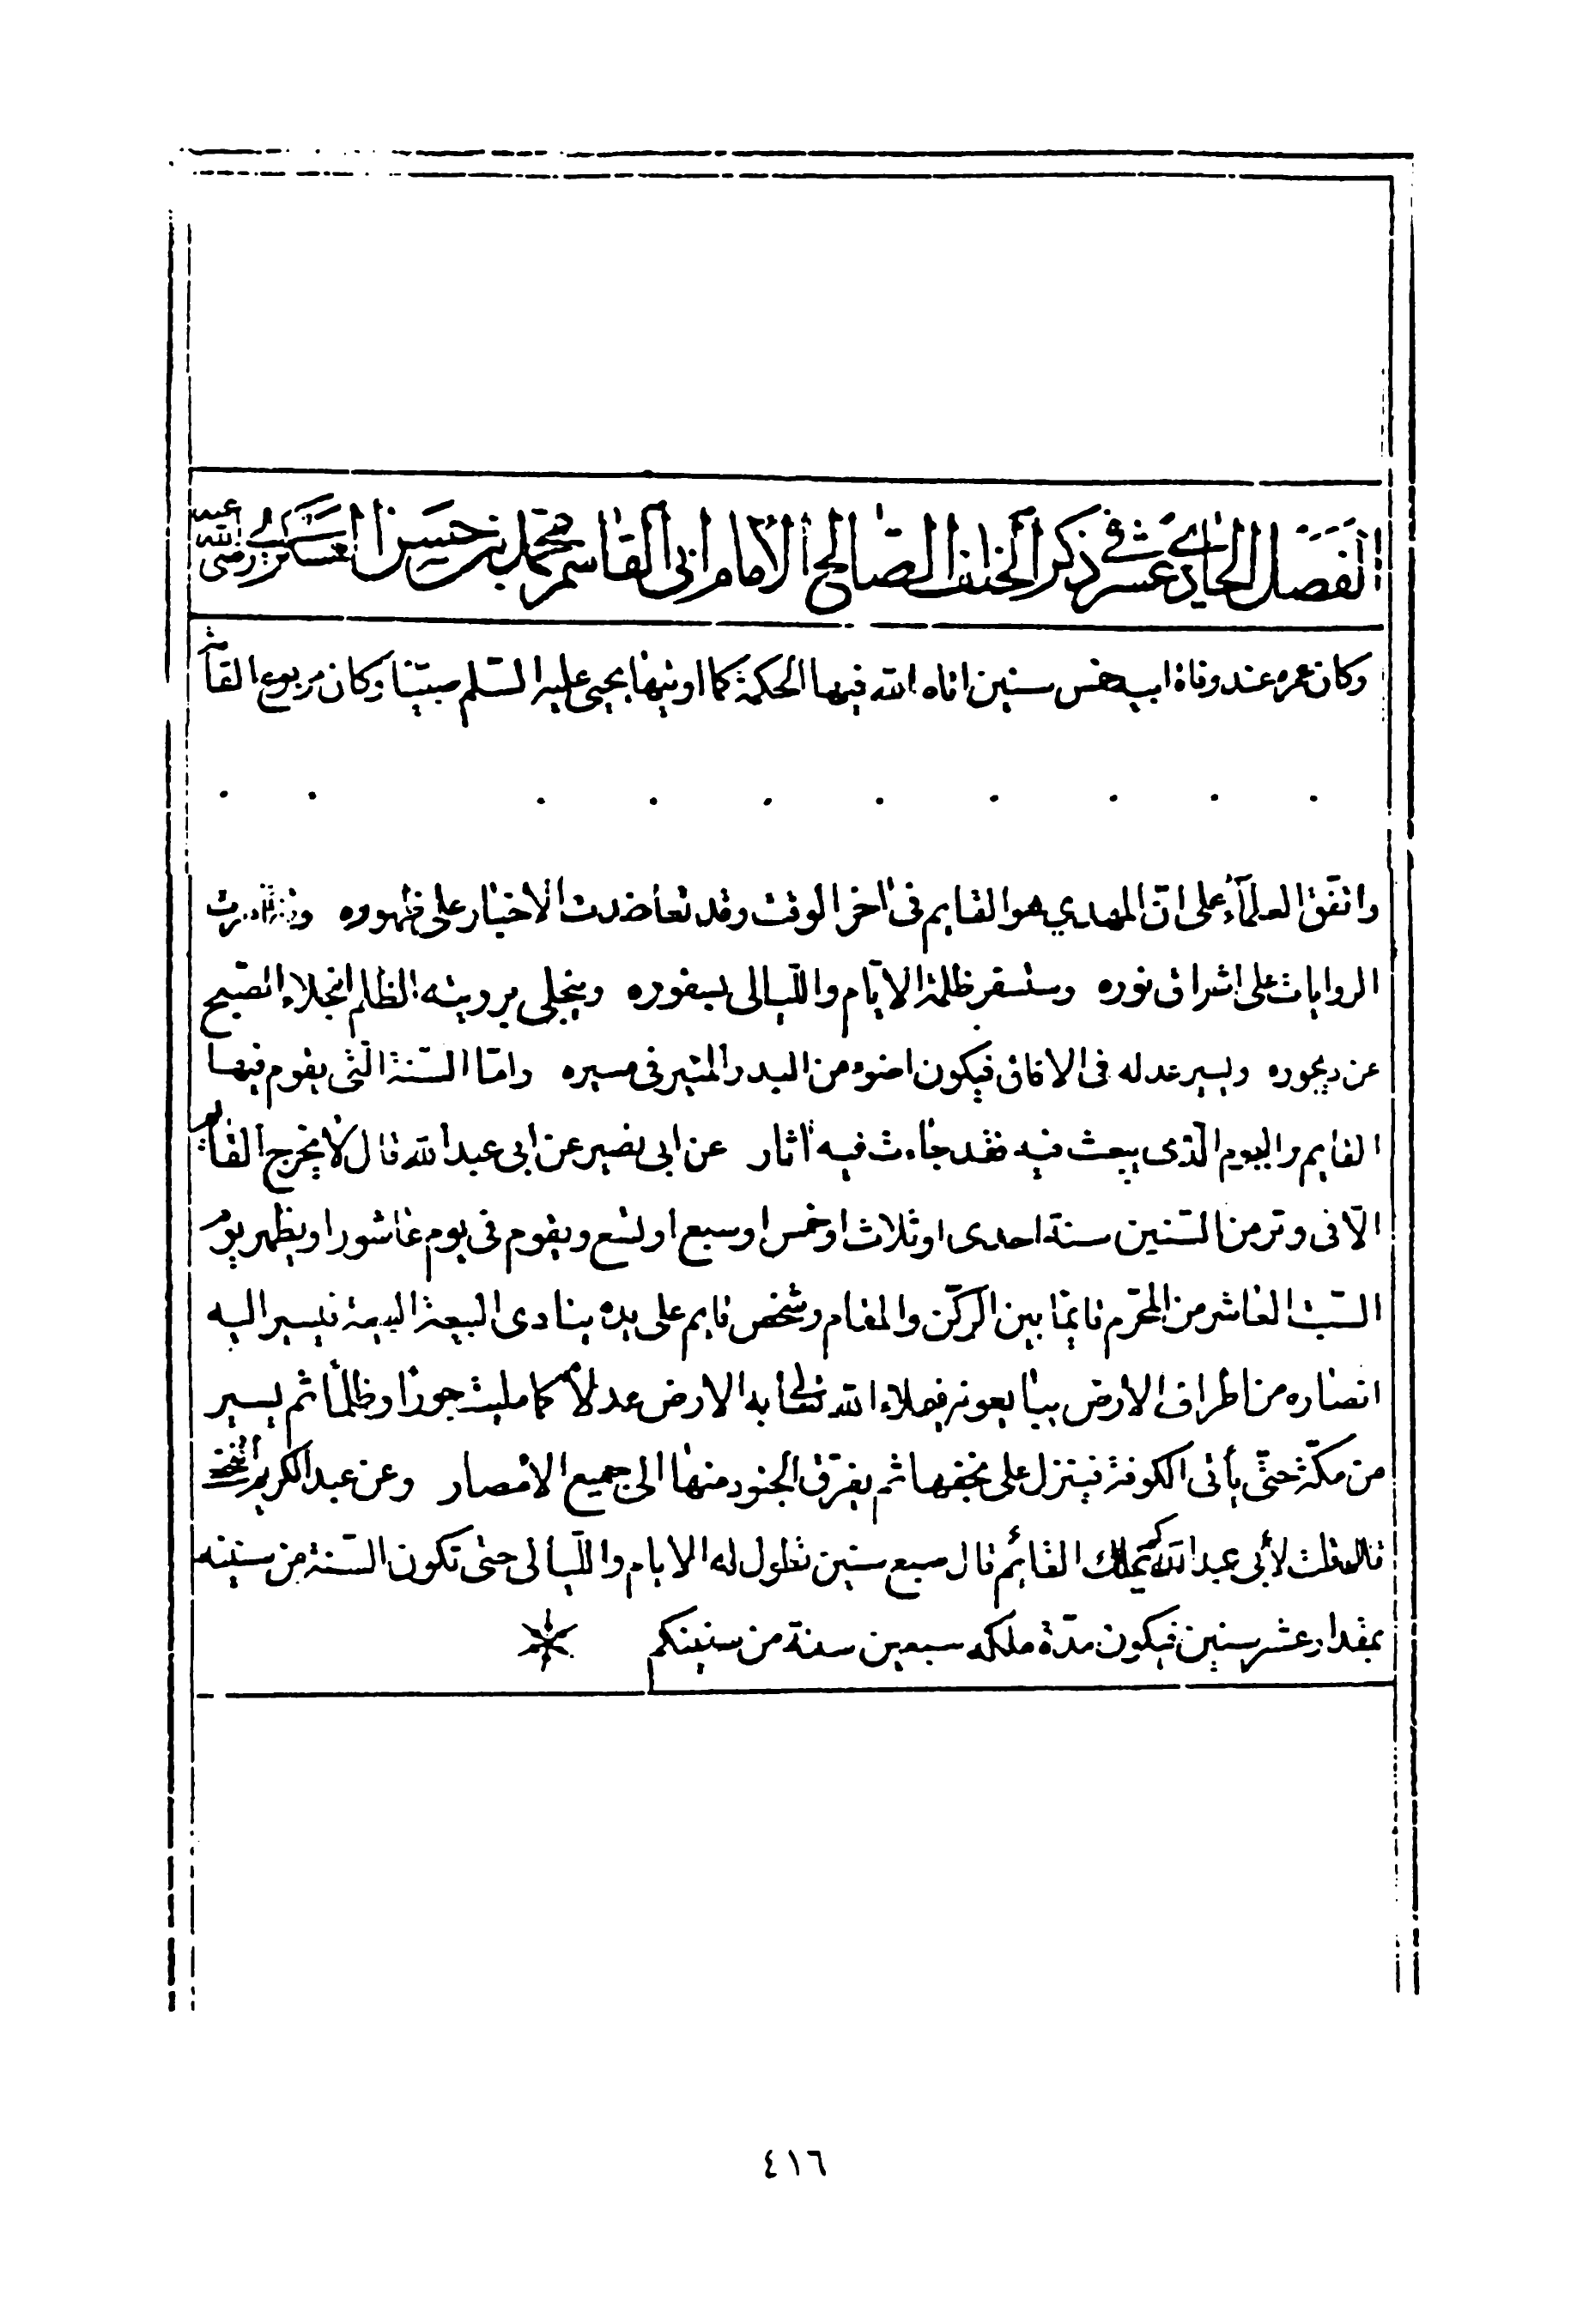 الفصل الحادي عشر في ذكر الخلف الصالح الامام ابي القاسم محمد بن حسن العسكري رضي الله عنه
وكان عمره عند وفاة ابيه خمس سنين اتاه الله فيها الحكمة كما اوتيها يحيى عليه السلم صبيّنا وكان مربوع القامة
واتّفق العلمآء على انّ المهدي هو القايم فى اخر الوقت وقد تعاضدت الاخبار على ظهوره وتظاهرت
الروايات على اشراق نوره وستسفر ظلمة الايّام واللّيالى بسفوره وينجلي برويته الظلم انجلاء الصّبح
عن ديجوره ويسير عدله فى الافاق فيكون اضوء من البدر المنير فى مسيره وامّا السّنة الّتى يقوم فيها
القايم واليوم الّذى يبعث فيه فقد جاءت فيه اثار عن ابى بصير عن ابى عبد الله قال لا يخرج القايم
الّا فى وتر من السّنين سنة احدى او ثلاث او خمس او سبع او تسع ويقوم فى يوم عاشورا ويظهر يوم
السّبت العاشر من المحرّم قايمًا بين الركن والمقام وشخص قايم على يده ينادى البيعة البيعة فيسير اليه
انصاره من اطراف الارض يبايعونه فيملاء الله تعالى به الارض عدلًا كما مليت جورًا وظلمًا ثم يسير
من مكّة حتّى يأتى الكوفة فينزل على نجفها ثم يفرّق الجنود منها الى جميع الامصار وعن عبد الكريم
قال قلت لأبى عبد الله كم يملك القائم قال سبع سنين تطول له الايام واللّيالى حتى تكون السّنة من سنينه
بمقدار عشر سنين فيكون مدّة ملكه سبعين سنة من سنينكم
٤١٦